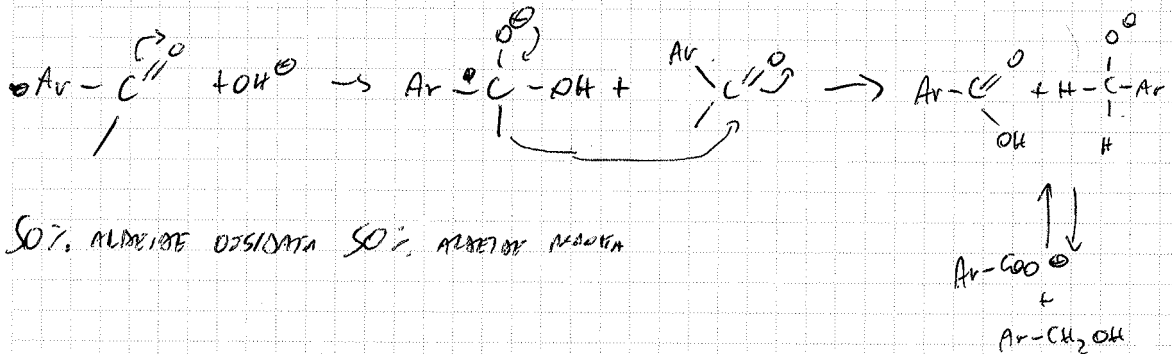 Ar - C = O + OH⊖ → Ar - C - OH + Ar C = O → Ar - C = O + H - C - Ar
O⊖ O⊖
OH H
50% ALDEIDE OSSIDATA 50% ALDEIDE RIDOTTA
Ar-COO⊖
+
Ar-CH₂OH